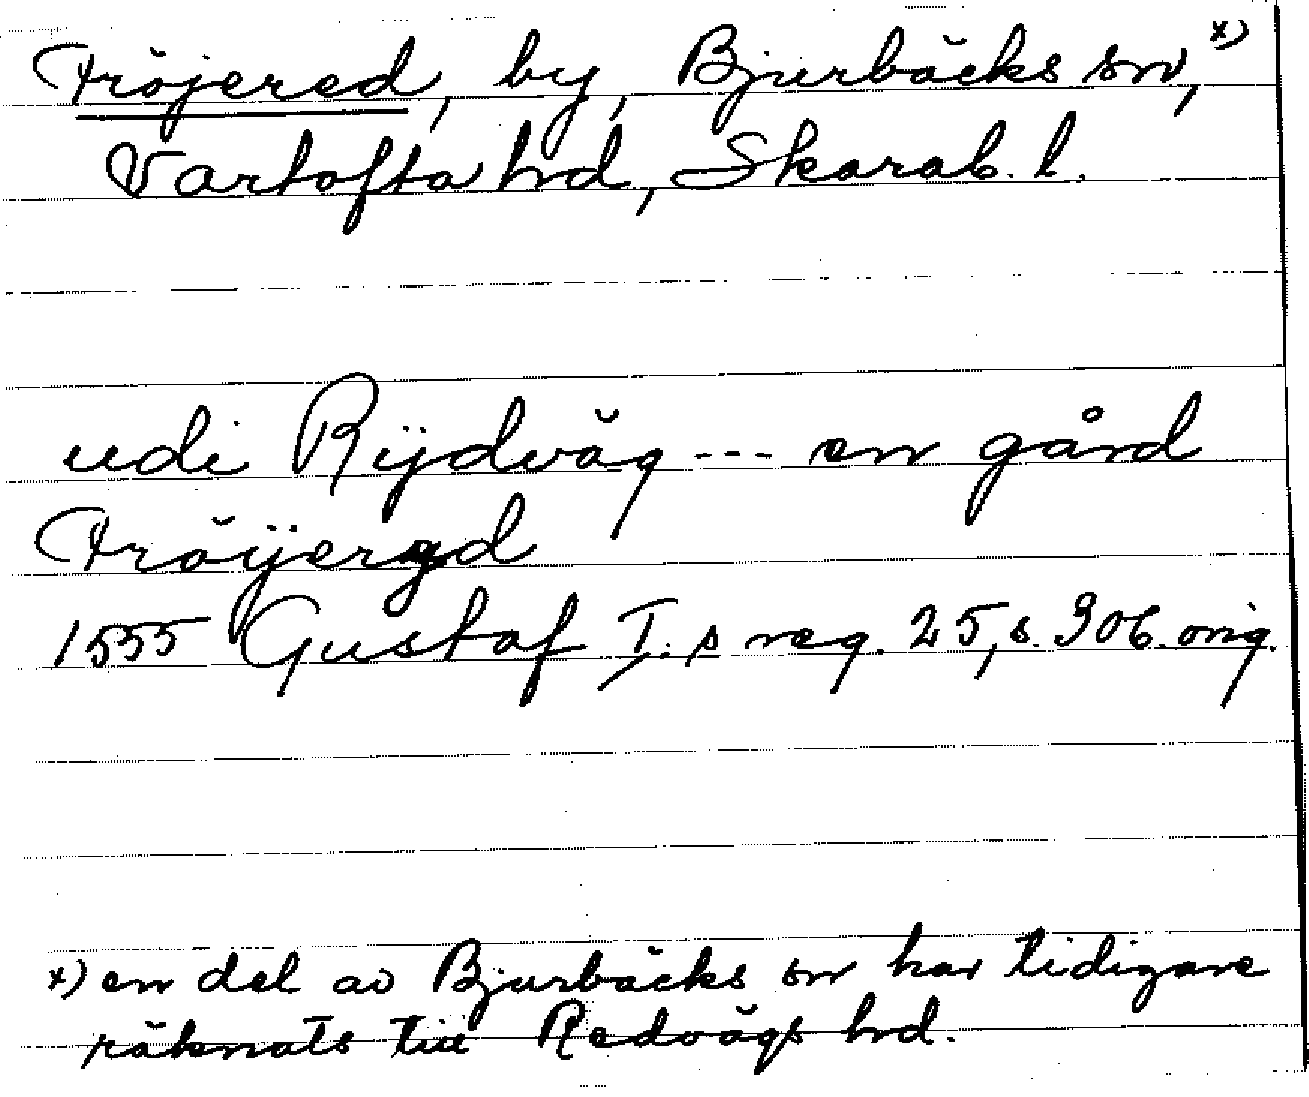 Fröjered, by, Bjurbäcks sn, x)
Vartofta hd, Skarab. l.
udi Rÿdväg --- en gård
Fröÿergd
1555 Gustaf I:s reg. 25, s. 306. orig.
x) en del av Bjurbäcks sn har tidigare
räknats till Redvägs hd.